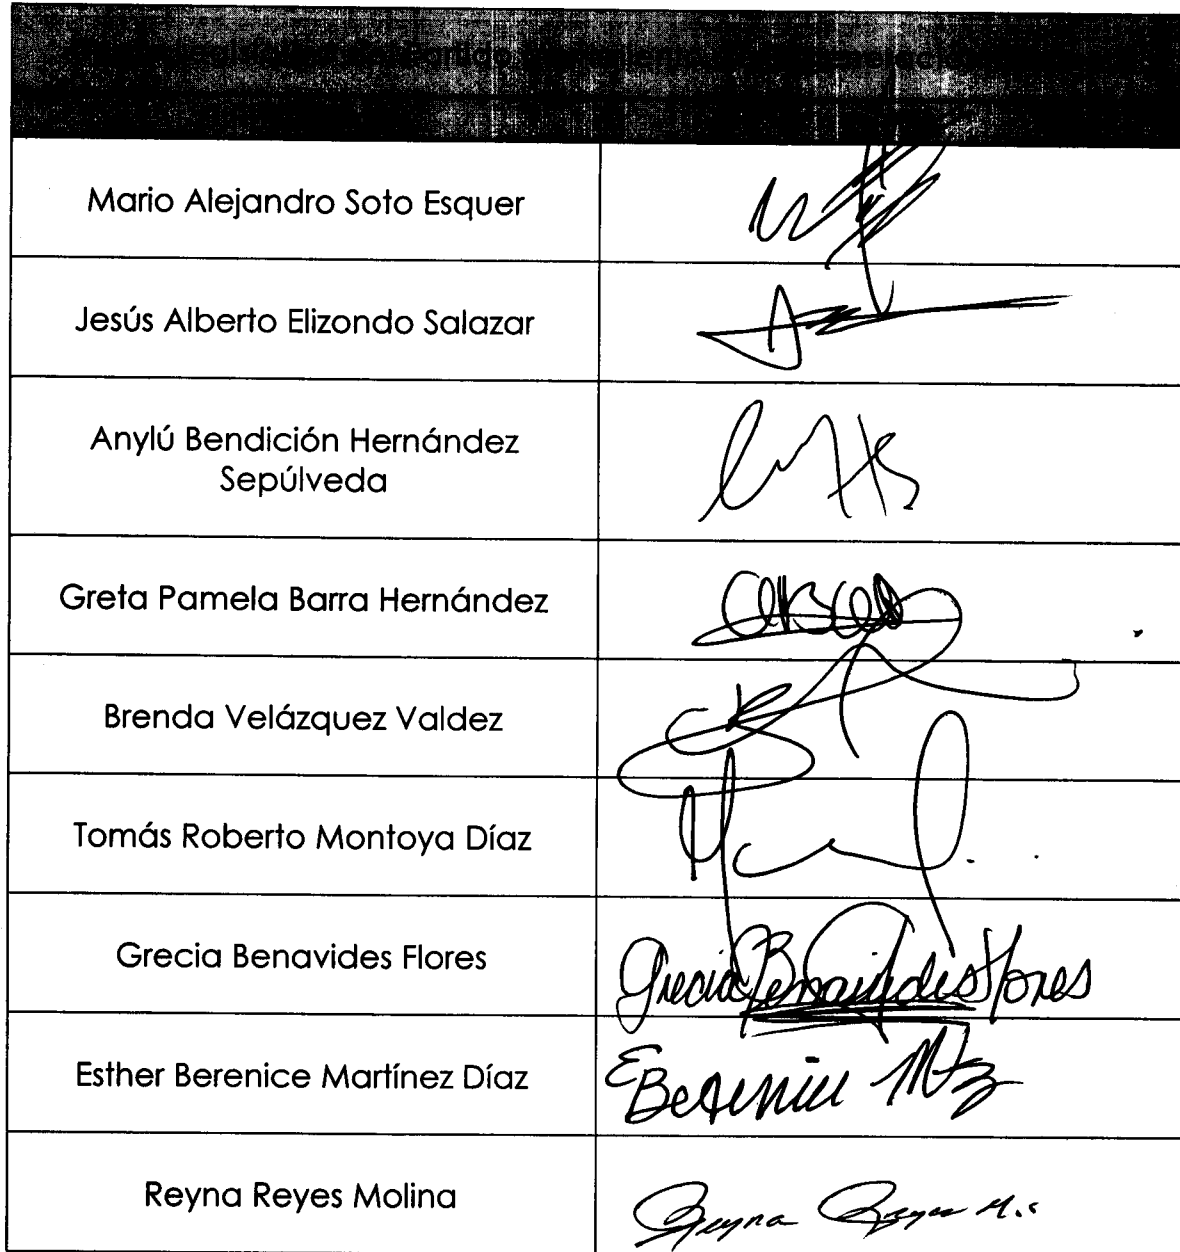 Partido
Mario Alejandro Soto Esquer
Jesús Alberto Elizondo Salazar
Anylú Bendición Hernández
Sepúlveda
Greta Pamela Barra Hernández
Brenda Velázquez Valdez
Tomás Roberto Montoya Díaz
Grecia Benavides Flores
Grecia Benavides Flores
Esther Berenice Martínez Díaz
E Berenice Mtz
Reyna Reyes Molina
Reyna Reyes M.